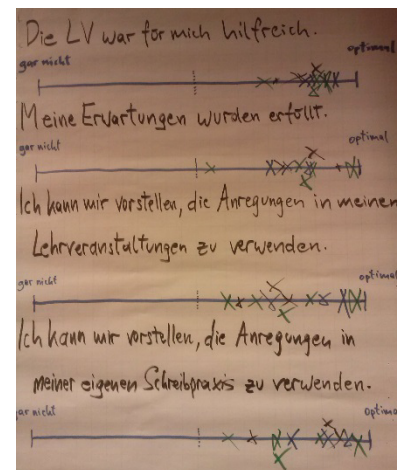 Die LV war für mich hilfreich.
gar nicht optimal
Meine Erwartungen wurden erfüllt.
gar nicht optimal
Ich kann mir vorstellen, die Anregungen in meinen
Lehrveranstaltungen zu verwenden.
gar nicht optimal
Ich kann mir vorstellen, die Anregungen in
meiner eigenen Schreibpraxis zu verwenden.
gar nicht optimal